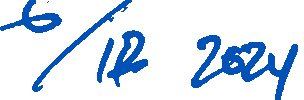 6/12 2024